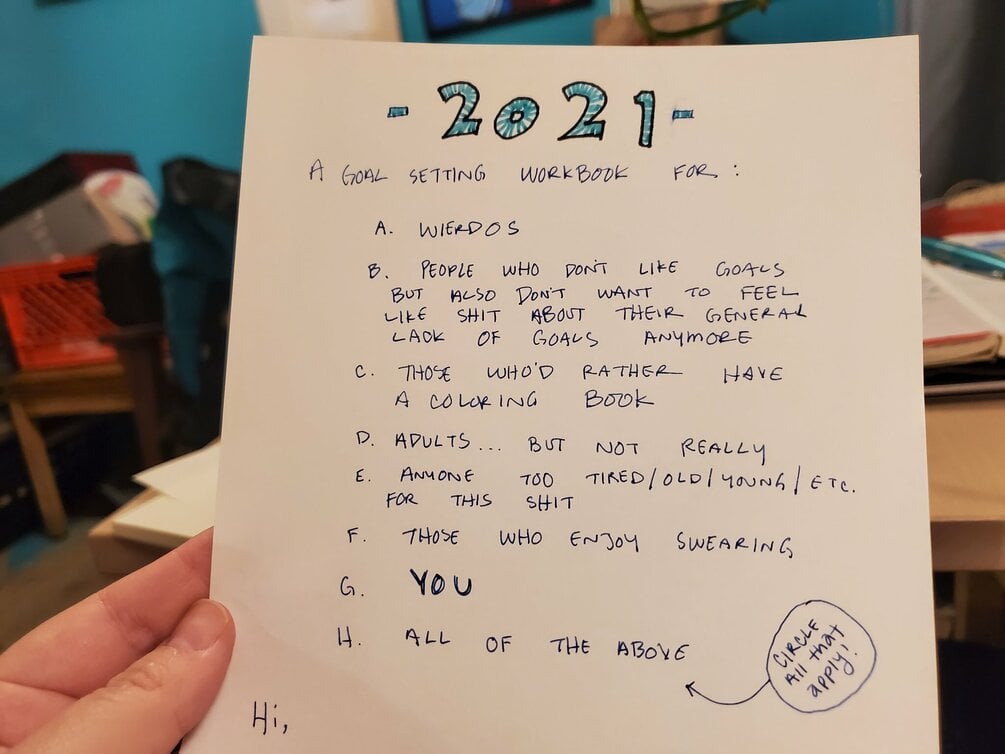 - 2021 -
A GOAL SETTING WORKBOOK FOR:
A. WIERDOS
B. PEOPLE WHO DON'T LIKE GOALS
BUT ALSO DON'T WANT TO FEEL
LIKE SHIT ABOUT THEIR GENERAL
LACK OF GOALS ANYMORE
C. THOSE WHO'D RATHER HAVE
A COLORING BOOK
D. ADULTS... BUT NOT REALLY
E. ANYONE TOO TIRED/OLD/YOUNG/ETC.
FOR THIS SHIT
F. THOSE WHO ENJOY SWEARING
G. YOU
H. ALL OF THE ABOVE
CIRCLE
All that
apply!
Hi,